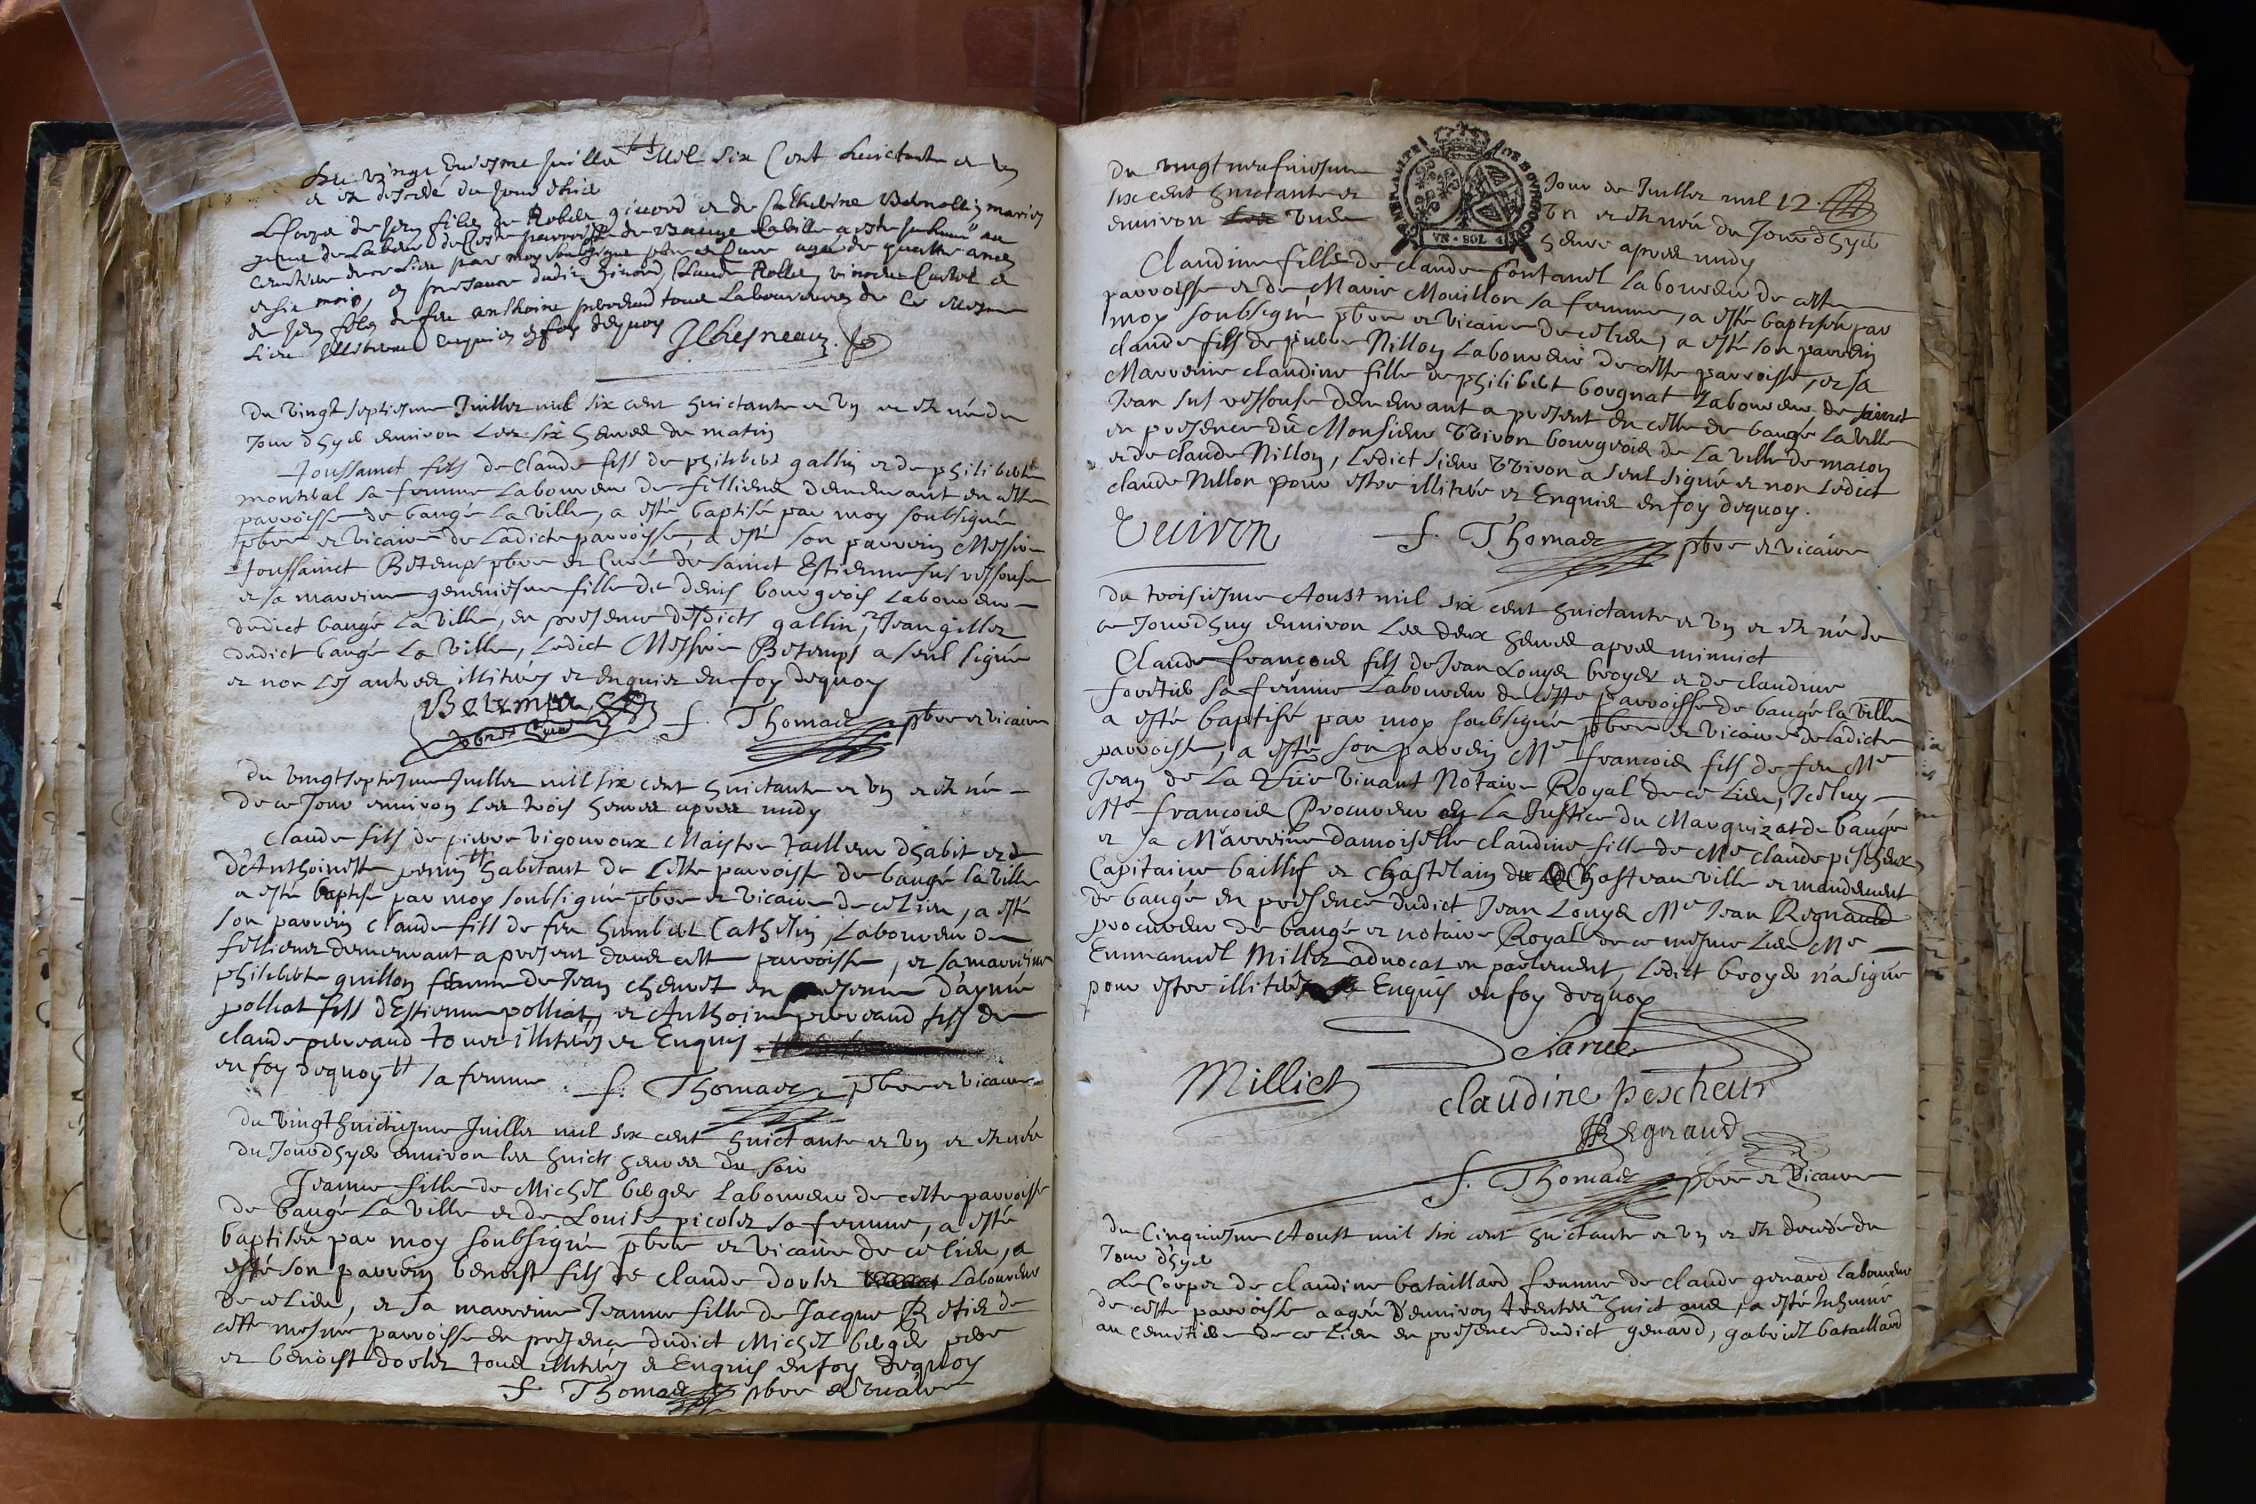 Du vingt Juillet Mil six Cent huictante et un
et est decedé du Jour d'hier
Le Corps de fils de et de Catherine mariez
de Baugé la ville a esté Inhumé au
Cemetiere de ce Lieu par moy soubsigné pbre et Curé agé de quattre ans
et six mois, en presence dudit Claude
de fils de feu Anthoine tous Laboureurs de ce mesme
Lieu Illitérés enquis en foy dequoy
du vingt septiesme Juillet mil six cent huictante et un et est né du
Jour d'hyer environ les six heures du matin
Toussainct fils de Claude fils de philibert gallin et de philiberte
montbal sa femme Laboureur de fillieux demeurant en cette
parroisse de baugé la ville, a esté baptisé par moy soubsigné
pbre et vicaire de Ladicte parroisse, a esté son parrein Messire
Toussainct Betemps pbre et Curé de Sainct Estienne sus ressouse
et sa marreine geneviesve fille de denis bourgeois Laboureur
dudict baugé La Ville, en presence desdicts gallin, et Jean gillet
dudict baugé La Ville, Ledict Messire Betemps a seul signé
et non les autres illitérés et enquis en foy dequoy
Betemps
f. Thomas pbre et vicaire
du vingt septiesme Juillet mil six cent huictante et un et est né
de ce Jour environ les trois heures apres midy
Claude fils de pierre vigouroux Maistre tailleur d'habit et de
d'Anthoinette perrin # habitant de cette parroisse de baugé la ville
a esté baptisé par moy soubsigné pbre et vicaire de ce Lieu, a esté
son parrein Claude fils de feu humbert Cathelin, Laboureur de
fillieux demeurant a present dans cette parroisse, et sa marreine
philiberte guillon femme de Jean chenet en presence d'aymé
polliat fils d'Estienne polliat, et Anthoine perreaud fils de
claude perreaud tous illitérés et Enquis
en foy dequoy # sa femme. f. Thomas pbre et vicaire
du vingt huictiesme Juillet mil six cent huictante et un et est née
du Jour d'hyer environ les huict heures du soir
Jeanne fille de Michel berger Laboureur de cette parroisse
de baugé La ville et de Louise picolet sa femme, a esté
baptisée par moy soubsigné pbre et vicaire de ce lieu, a
esté son parrein benoist fils de claude dorlet Laboureur
de ce Lieu, et sa marreine Jeanne fille de Jacque Retier de
cette mesme parroisse en presence dudict Michel berger pere
et benoist dorlet tous illitérés et Enquis en foy dequoy
f. Thomas pbre et vicaire
du vingt neufviesme Jour de Juillet mil 12.
six cent huictante et un et est née du Jour d'hyer
environ une heure apres midy
GENERALITE DE BOURGOGNE
UN SOL
Claudine fille de claude fontanel laboureur de cette
parroisse et de Marie Mouillon sa femme, a esté baptisée par
moy soubsigné pbre et vicaire de ce lieu, a esté son parrein
claude fils de pierre Nillon Laboureur de cette parroisse, et sa
Marreine claudine fille de philibert borgnat Laboureur de Sainct
Jean sus ressouse demeurant a present en cette de baugé la ville
en presence du Monsieur Veiron bourgeois de La ville de macon
et de claude Nillon, Ledict sieur Veiron a seul signé et non Ledict
claude Nillon pour estre illitéré et Enquis en foy dequoy.
Veiron
f. Thomas pbre et vicaire
du troisiesme Aoust mil six cent huictante et un et est né de
ce Jourd'huy environ Les deux heures apres minuict
Claude françois fils de Jean Louys broyer et de claudine
sa femme Laboureur de cette parroisse de baugé la ville
a esté baptisé par moy soubsigné pbre et vicaire de ladicte
parroisse, a esté son parrein Me françois fils de feu Me
Jean de La Rüe vivant Notaire Royal de ce Lieu, Iceluy
Me françois Procureur en La Justice du Marquizat de baugé
et sa Marreine damoiselle claudine fille de Me claude pescheur
Capitaine baillif et chastelain du Chasteau ville et mandement
de baugé en presence dudict Jean Louys Me Jean Regnauld
procureur de baugé et notaire Royal de ce mesme Lieu Me
Emmanuel Milliet advocat en parlement, Ledict broyer n'a signé
pour estre illitéré Enquis en foy dequoy
Delarüe
Milliet
claudine pescheur
Regnaud
f. Thomas pbre et vicaire
du Cinquiesme Aoust mil six cent huictante et un et est decedé du
Jour d'hyer
Le Corps de claudine bataillard femme de claude genard laboureur
de cette parroisse aagée d'environ trente et huict ans, a esté Inhumé
au Cemetiere de ce Lieu en presence dudict genard, gabriel bataillard